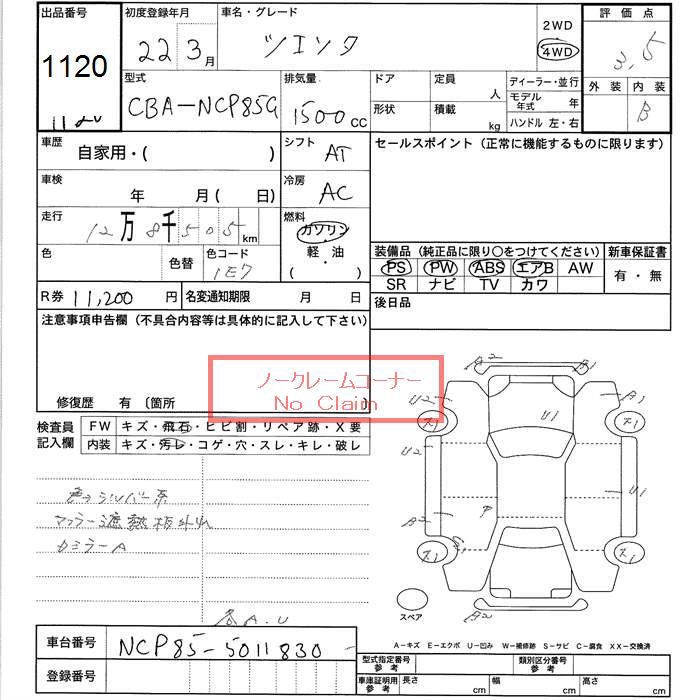 出品番号 初度登録年月 車名・グレード 2WD 評価点
1120 22 3月 ツエソタ 4WD 3,5
型式 排気量 ドア 定員 人 ディーラー・並行 外装 内装
1120 CBA-NCP85G 1500cc 形状 積載 kg モデル年式 年 B
ハンドル 左・右
車歴 自家用・( ) シフト AT セールスポイント(正常に機能するものに限ります)
車検 年 月( 日) 冷房 AC
走行 12万8千505km 燃料 ガソリン・軽・油( )
色 色替 色コード 1E7
装備品(純正品に限り〇をつけてください) 新車保証書
PS PW ABS エアB AW 有・無
SR ナビ TV カワ
R券 11,200円 名変通知期限 月 日 後日品
注意事項申告欄(不具合内容等は具体的に記入して下さい)
ノークレームコーナー
No Claim
修復歴 有〔箇所
検査員記入欄 FW キズ・飛石・ヒビ割・リペア跡・X要
内装 キズ・汚レ・コゲ・穴・スレ・キレ・破レ
色→シルバー系
マフラー遮熱板外れ
カミラーA
各A.U
A2 B1
U2 U1 A1
ス1 ス1
U2 U1
A2 P
ス1 ス1
B2
スペア
A-キズ E-エクボ U-凹み W-補修跡 S-サビ C-腐食 XX-交換済
車台番号 NCP85-5011830
型式指定番号参考 類別区分番号参考
登録番号 車庫証明用参考 長さ cm 幅 cm 高さ cm